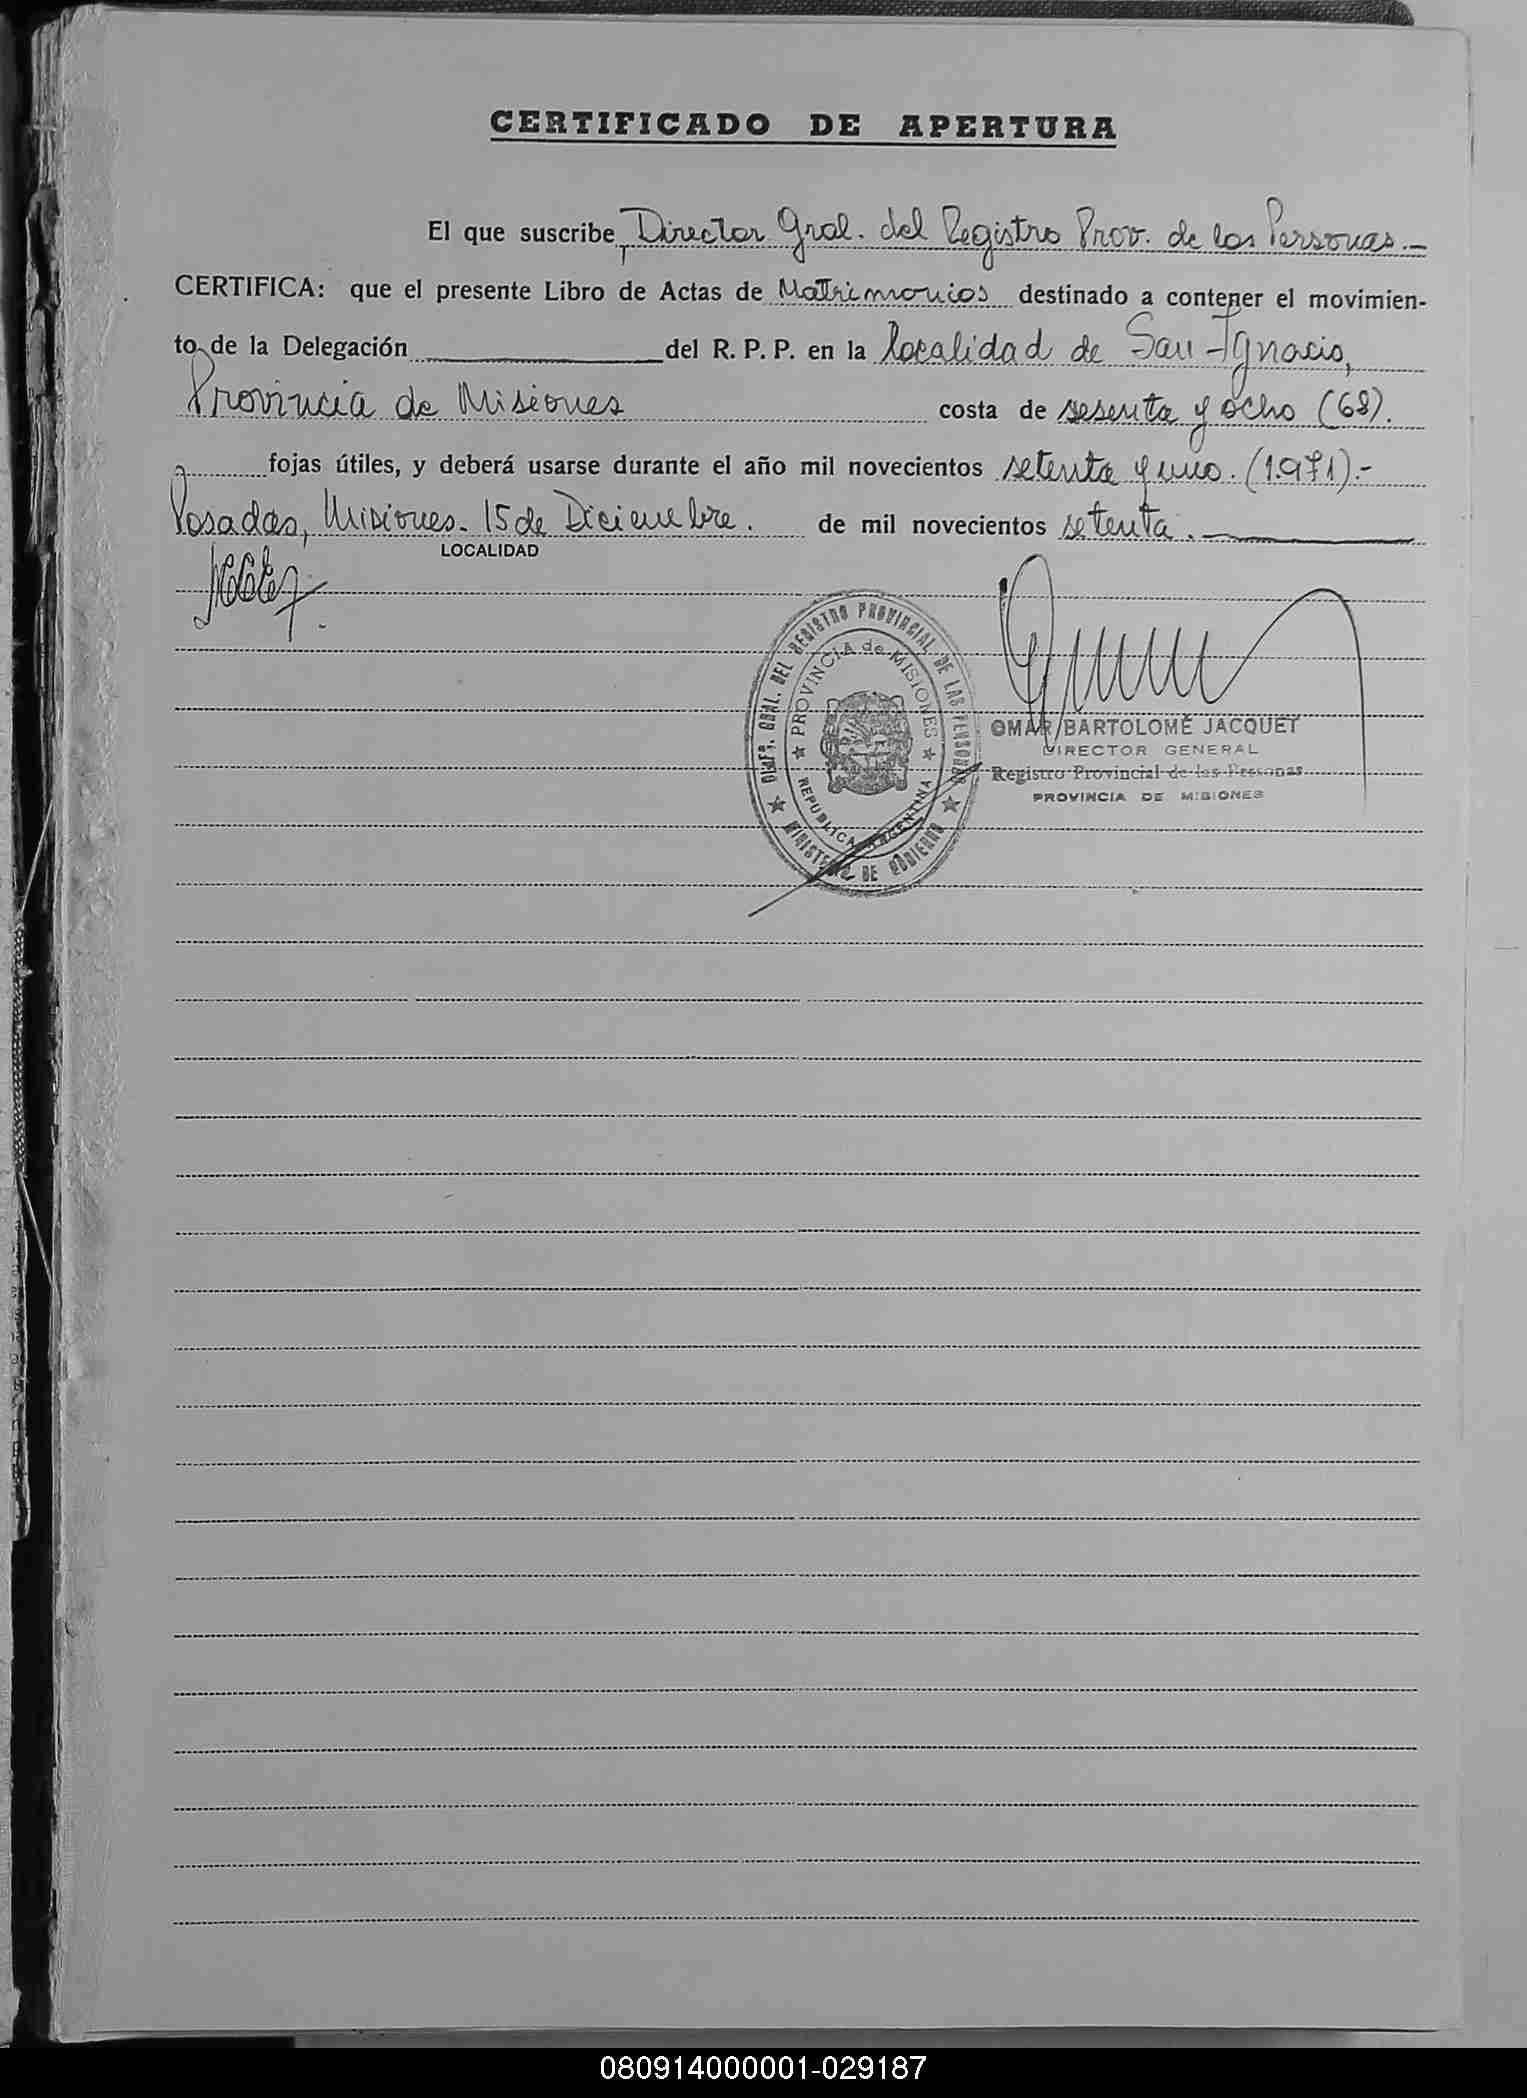 CERTIFICADO DE APERTURA
El que suscribe, Director Gral. del Registro Prov. de las Personas.-
CERTIFICA: que el presente Libro de Actas de Matrimonios destinado a contener el movimien-
to de la Delegación del R. P. P. en la localidad de San Ignacio,
Provincia de Misiones costa de sesenta y ocho (68).
fojas útiles, y deberá usarse durante el año mil novecientos setenta y uno. (1.971).-
Posadas, Misiones. 15 de Diciembre. de mil novecientos setenta.
LOCALIDAD
DIREC. GRAL. DEL REGISTRO PROVINCIAL DE LAS PERSONAS
PROVINCIA de MISIONES
REPUBLICA ARGENTINA
MINISTERIO DE GOBIERNO
OMAR BARTOLOMÉ JACQUET
DIRECTOR GENERAL
Registro Provincial de las Personas
PROVINCIA DE MISIONES
080914000001-029187